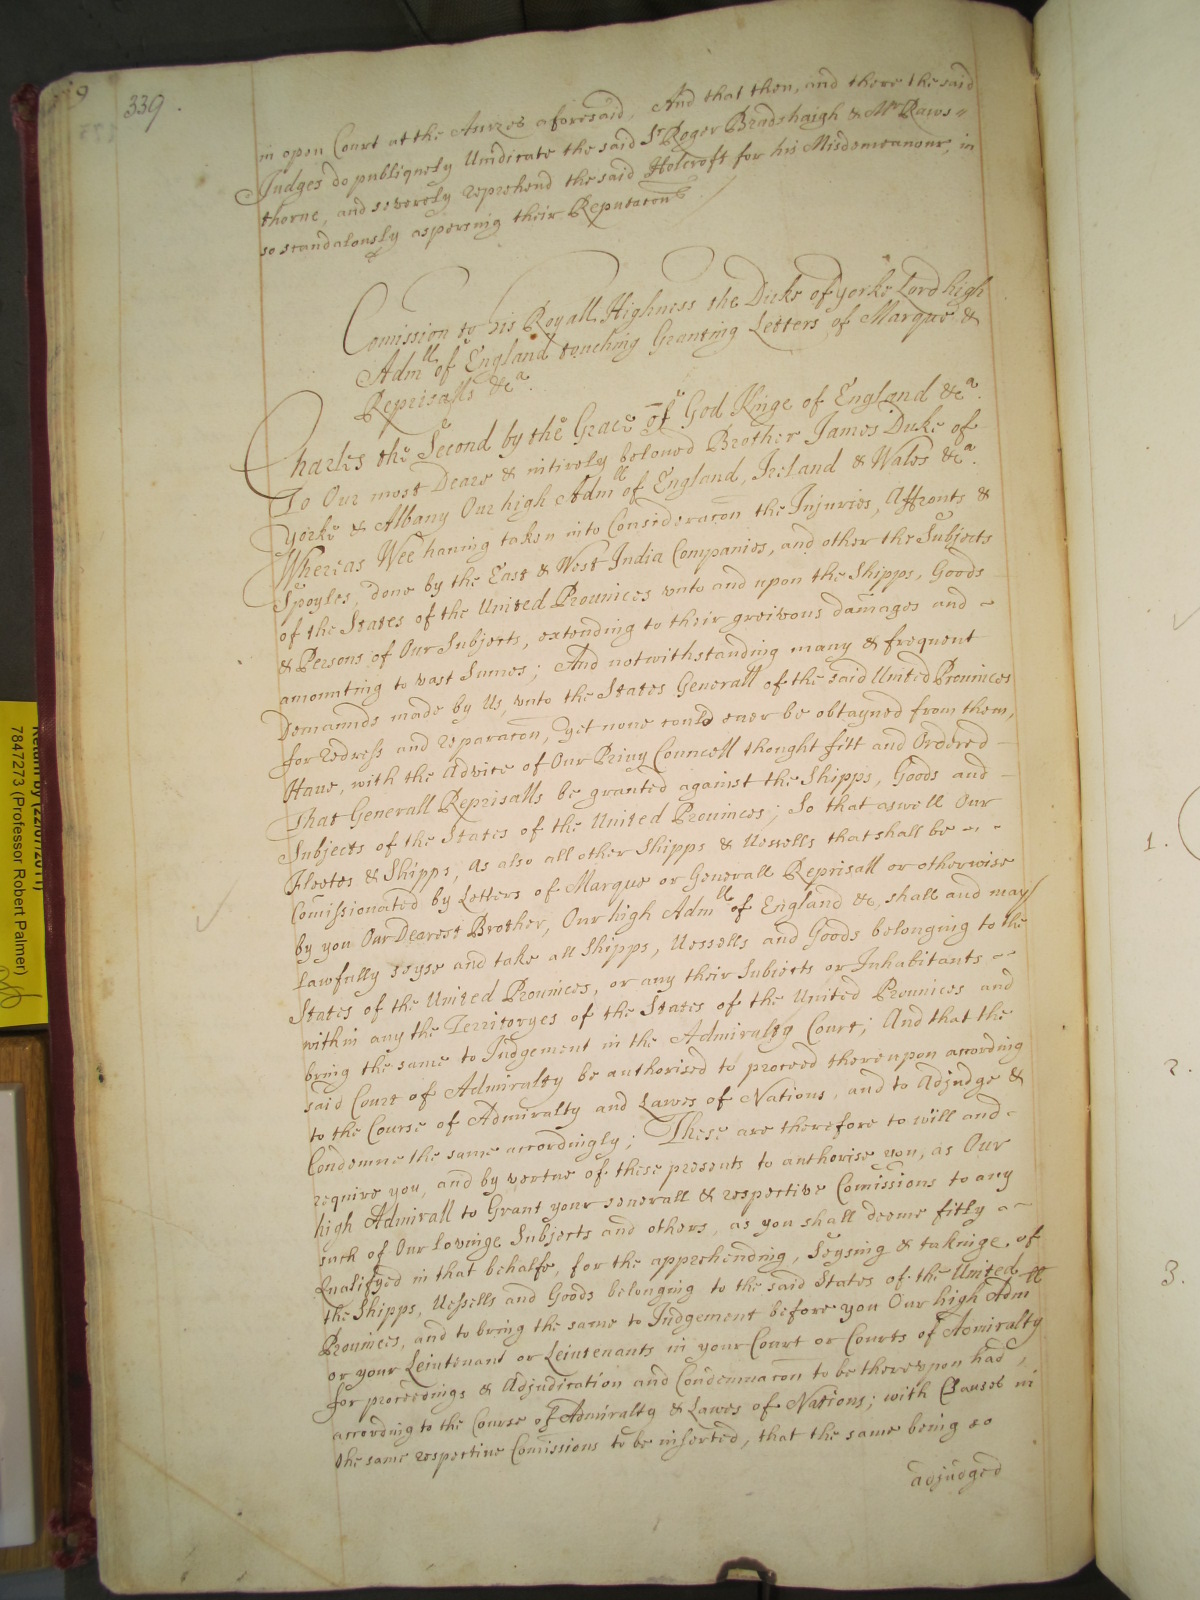 339.
in open Court at the Assizes aforesaid, And that then, and there the said
Judges do publiquely Vindicate the said Sr Roger Bradshaigh & Mr Raws=
thorne, and severely reprehend the said Holcroft for his Misdemeanour, in
so scandalously aspersing their Reputacons.
Comission to his Royall Highness the Duke of yorke Lord high
Admll of England touching Granting Letters of Marque &
Reprisalls &ca.
Charles the Second by the Grace of God Kinge of England &ca.
To Our most Deare & intirely beloved Brother James Duke of
yorke & Albany Our high Admll of England, Ireland & Wales &ca.
Whereas Wee having taken into Consideracon the Injuries, Affronts &
Spoyles, done by the East & West India Companies, and other the Subjects
of the States of the United Provinces vnto and upon the Shipps, Goods
& Persons of Our Subjects, extending to their greivous damages and ~
amounting to vast Sumes; And notwithstanding many & frequent
Demaunds made by Us, vnto the States Generall of the said United Provinces
for redress and reparacon, yet none could ever be obtayned from them,
Have, with the advice of Our Privy Councell thought fitt and Ordered
That Generall Reprisalls be granted against the Shipps, Goods and
Subjects of the States of the United Provinces; So that aswell Our
Fleetes & Shipps, as also all other Shipps & Vessells that shall be
Comissionated by Letters of Marque or Generall Reprisall or otherwise
by you Our Dearest Brother, Our high Admll of England &c, shall and may
lawfully seyse and take all Shipps, Vessells and Goods belonging to the
States of the United Provinces, or any their Subiects or Inhabitants
within any the Territoryes of the States of the United Provinces and
bring the same to Judgement in the Admiralty Court; And that the
said Court of Admiralty be authorised to proceed thereupon according
to the Course of Admiralty and Lawes of Nations, and to Adjudge &
Condemne the same accordingly; These are therefore to will and
require you, and by vertue of these presents to authorise you, as Our
high Admirall to Grant your severall & respective Comissions to any
such of Our lovinge Subjects and others, as you shall deeme fitly
Qualifyed in that behalfe, for the apprehending, Seysing & takinge of
the Shipps, Vessells and Goods belonging to the said States of the United
Provinces, and to bring the same to Judgement before you Our high Admll
or your Leiutenant or Leiutenants in your Court or Courts of Admiralty
for proceedings & Adjudication and Condemnacon to be thereupon had,
according to the Course of Admiralty & Lawes of Nations; with Clauses in
the same respective Comissions to be inserted, that the same being so
adjudged
1.
2.
3.
7847273 (Professor Robert Palmer)